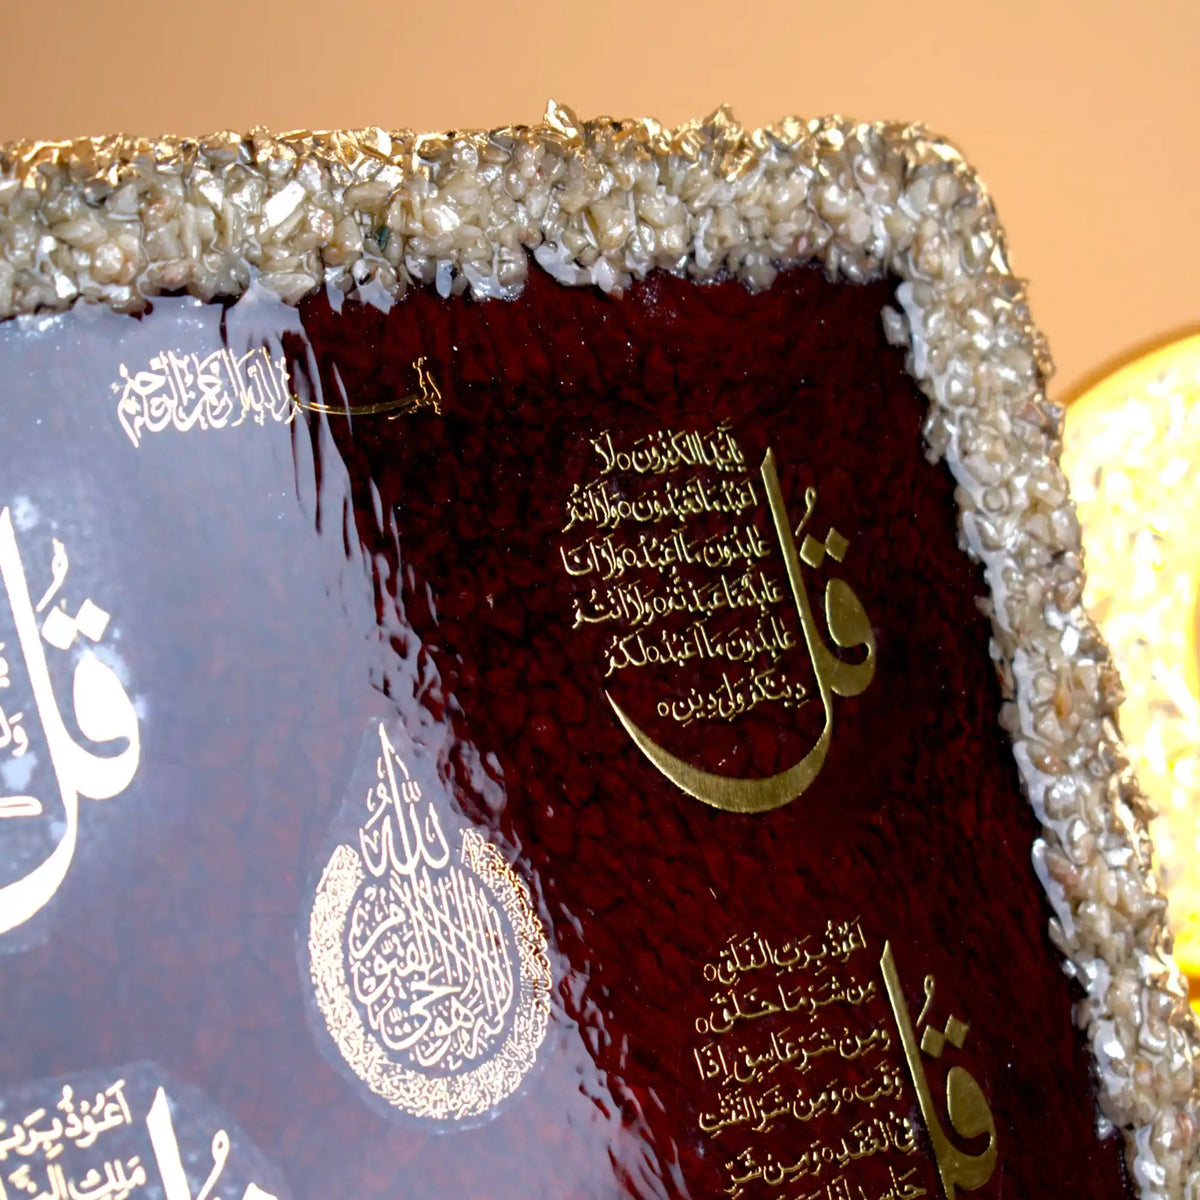 بسم الله الرحمن الرحيم
قل
يأيها الكفرون ٥ لا
اعبد ما تعبدون ٥ ولا انتم
عابدون ما اعبد ٥ ولا انا
عابد ما عبدتم ٥ ولا انتم
عابدون ما اعبد ٥ لكم
دينكم ولي دين ٥
قل
الله
الله لا اله الا هو الحي القيوم
قل
اعوذ برب الفلق ٥
من شر ما خلق ٥
ومن شر غاسق اذا
وقب ٥ ومن شر النفثت
في العقد ٥ ومن شر
حاسد اذا
قل
اعوذ برب
ملك